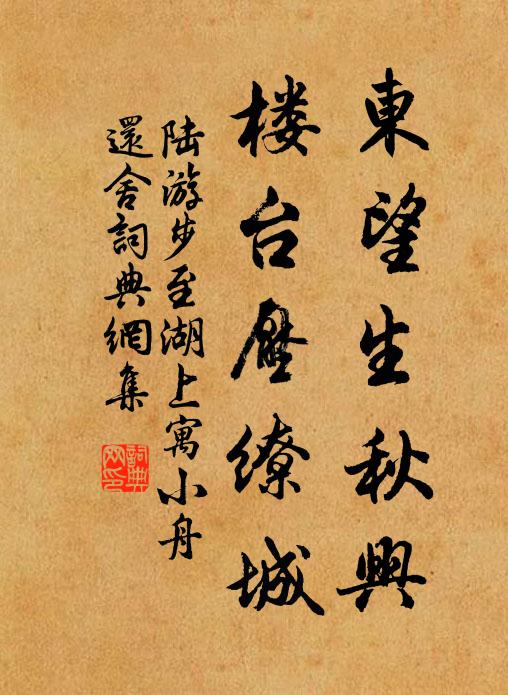 東望生秋興
楼台壓繚城
陆游步至湖上寓小舟
還舍詞典網集
詞典
网印